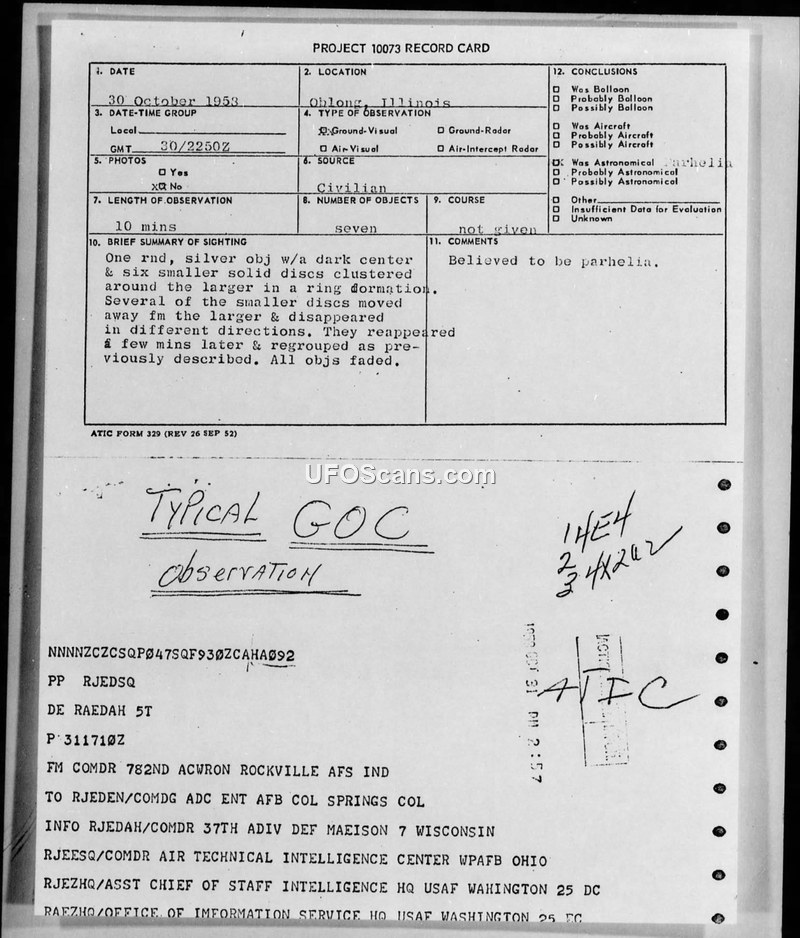 PROJECT 10073 RECORD CARD
1. DATE
30 October 1953
2. LOCATION
Oblong, Illinois
12. CONCLUSIONS
Was Balloon
Probably Balloon
Possibly Balloon
Was Aircraft
Probably Aircraft
Possibly Aircraft
Was Astronomical parhelia
Probably Astronomical
Possibly Astronomical
Other
Insufficient Data for Evaluation
Unknown
3. DATE-TIME GROUP
Local
GMT 30/2250Z
4. TYPE OF OBSERVATION
Ground-Visual Ground-Radar
Air-Visual Air-Intercept Radar
5. PHOTOS
Yes
No
6. SOURCE
Civilian
7. LENGTH OF OBSERVATION
10 mins
8. NUMBER OF OBJECTS
seven
9. COURSE
not given
10. BRIEF SUMMARY OF SIGHTING
One rnd, silver obj w/a dark center
& six smaller solid discs clustered
around the larger in a ring dormation.
Several of the smaller discs moved
away fm the larger & disappeared
in different directions. They reappeared
a few mins later & regrouped as pre-
viously described. All objs faded.
11. COMMENTS
Believed to be parhelia.
ATIC FORM 329 (REV 26 SEP 52)
UFOScans.com
TYPICAL GOC
ObservATION
14E4
2
3 4X2
ATIC
NNNNZCZCSQPØ47SQF93ØZCAHAØ92
PP RJEDSQ
DE RAEDAH 5T
P 31171ØZ
FM COMDR 782ND ACWRON ROCKVILLE AFS IND
TO RJEDEN/COMDG ADC ENT AFB COL SPRINGS COL
INFO RJEDAH/COMDR 37TH ADIV DEF MAEISON 7 WISCONSIN
RJEESQ/COMDR AIR TECHNICAL INTELLIGENCE CENTER WPAFB OHIO
RJEZHQ/ASST CHIEF OF STAFF INTELLIGENCE HQ USAF WAHINGTON 25 DC
RAEZHQ/OFFICE OF IMFORMATION SERVICE HQ USAF WASHINGTON 25 EC